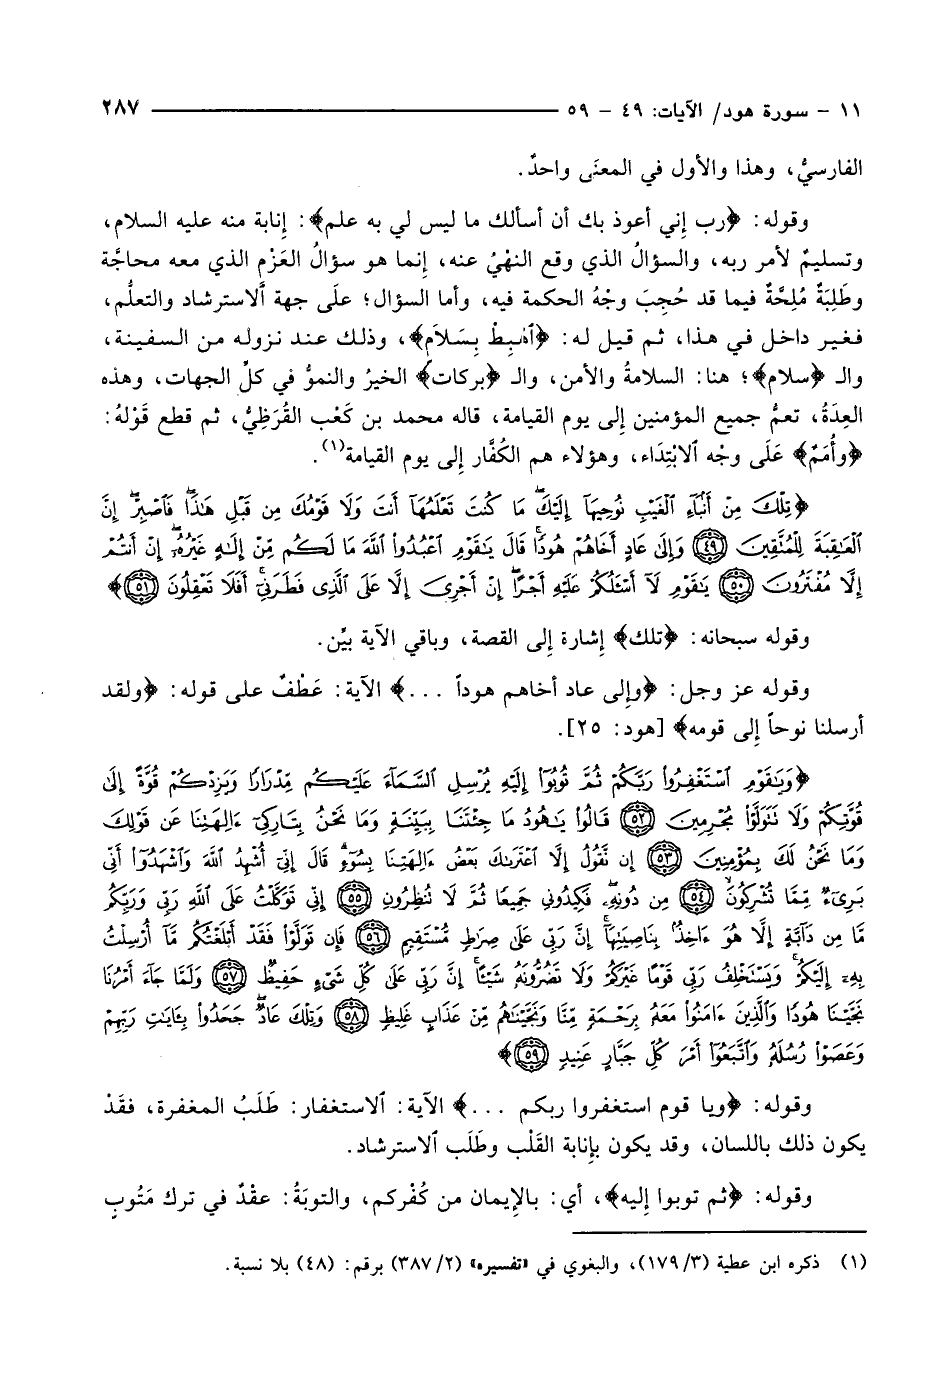 ١١ – سورة هود/ الآيات: ٤٩ – ٥٩ ٢٨٧
الفارسيُّ، وهذا والأول في المعنَى واحدٌ.
وقوله: ﴿رب إِني أعوذ بك أن أسألك ما ليس لي به علم﴾: إِنابة منه عليه السلام،
وتسليمٌ لأمر ربه، والسؤالُ الذي وقع النهْيُ عنه، إِنما هو سؤالُ العَزْمِ الذي معه محاجَّة
وطَلِبَةٌ مُلِحَّةٌ فيما قد حُجِبَ وجْهُ الحكمة فيه، وأما السؤال؛ علَى جهة ٱلاسترشاد والتعلُّم،
فغير داخل في هذا، ثم قيل له: ﴿ٱهْبِطْ بِسَلاَمٍ﴾، وذلك عند نزوله من السفينة،
والـ ﴿سلام﴾؛ هنا: السلامةُ والأمن، والـ ﴿بركات﴾ الخيرُ والنموُّ في كلِّ الجهات، وهذه
العِدَةُ، تعمُّ جميع المؤمنين إِلى يوم القيامة، قاله محمد بن كَعْب القُرَظِيُّ، ثم قطع قَوْلهُ:
﴿وأُمَمٌ﴾ عَلَى وجْه ٱلابْتِدَاء، وهؤلاء هم الكُفَّار إِلى يوم القيامة(١).
﴿تِلْكَ مِنْ أَنۢبَآءِ ٱلْغَيْبِ نُوحِيهَآ إِلَيْكَۖ مَا كُنتَ تَعْلَمُهَآ أَنتَ وَلَا قَوْمُكَ مِن قَبْلِ هَـٰذَاۖ فَٱصْبِرْۖ إِنَّ
ٱلْعَـٰقِبَةَ لِلْمُتَّقِينَ ﴿٤٩﴾ وَإِلَىٰ عَادٍ أَخَاهُمْ هُودًاۚ قَالَ يَـٰقَوْمِ ٱعْبُدُوا۟ ٱللَّهَ مَا لَكُم مِّنْ إِلَـٰهٍ غَيْرُهُۥٓۖ إِنْ أَنتُمْ
إِلَّا مُفْتَرُونَ ﴿٥٠﴾ يَـٰقَوْمِ لَآ أَسْـَٔلُكُمْ عَلَيْهِ أَجْرًاۖ إِنْ أَجْرِىَ إِلَّا عَلَى ٱلَّذِى فَطَرَنِىٓۚ أَفَلَا تَعْقِلُونَ ﴿٥١﴾﴾
وقوله سبحانه: ﴿تلك﴾ إشارة إِلى القصة، وباقي الآية بيِّن.
وقوله عز وجل: ﴿وإِلى عاد أخاهم هوداً ...﴾ الآية: عَطْفٌ على قوله: ﴿ولقد
أرسلنا نوحاً إِلى قومه﴾ [هود: ٢٥].
﴿وَيَـٰقَوْمِ ٱسْتَغْفِرُوا۟ رَبَّكُمْ ثُمَّ تُوبُوٓا۟ إِلَيْهِ يُرْسِلِ ٱلسَّمَآءَ عَلَيْكُم مِّدْرَارًا وَيَزِدْكُمْ قُوَّةً إِلَىٰ
قُوَّتِكُمْ وَلَا تَتَوَلَّوْا۟ مُجْرِمِينَ ﴿٥٢﴾ قَالُوا۟ يَـٰهُودُ مَا جِئْتَنَا بِبَيِّنَةٍ وَمَا نَحْنُ بِتَارِكِىٓ ءَالِهَتِنَا عَن قَوْلِكَ
وَمَا نَحْنُ لَكَ بِمُؤْمِنِينَ ﴿٥٣﴾ إِن نَّقُولُ إِلَّا ٱعْتَرَىٰكَ بَعْضُ ءَالِهَتِنَا بِسُوٓءٍۗ قَالَ إِنِّىٓ أُشْهِدُ ٱللَّهَ وَٱشْهَدُوٓا۟ أَنِّى
بَرِىٓءٌ مِّمَّا تُشْرِكُونَ ﴿٥٤﴾ مِن دُونِهِۦۖ فَكِيدُونِى جَمِيعًا ثُمَّ لَا تُنظِرُونِ ﴿٥٥﴾ إِنِّى تَوَكَّلْتُ عَلَى ٱللَّهِ رَبِّى وَرَبِّكُم
مَّا مِن دَآبَّةٍ إِلَّا هُوَ ءَاخِذٌۢ بِنَاصِيَتِهَآۚ إِنَّ رَبِّى عَلَىٰ صِرَٰطٍ مُّسْتَقِيمٍ ﴿٥٦﴾ فَإِن تَوَلَّوْا۟ فَقَدْ أَبْلَغْتُكُم مَّآ أُرْسِلْتُ
بِهِۦٓ إِلَيْكُمْۚ وَيَسْتَخْلِفُ رَبِّى قَوْمًا غَيْرَكُمْ وَلَا تَضُرُّونَهُۥ شَيْـًٔاۚ إِنَّ رَبِّى عَلَىٰ كُلِّ شَىْءٍ حَفِيظٌ ﴿٥٧﴾ وَلَمَّا جَآءَ أَمْرُنَا
نَجَّيْنَا هُودًا وَٱلَّذِينَ ءَامَنُوا۟ مَعَهُۥ بِرَحْمَةٍ مِّنَّا وَنَجَّيْنَـٰهُم مِّنْ عَذَابٍ غَلِيظٍ ﴿٥٨﴾ وَتِلْكَ عَادٌۖ جَحَدُوا۟ بِـَٔايَـٰتِ رَبِّهِمْ
وَعَصَوْا۟ رُسُلَهُۥ وَٱتَّبَعُوٓا۟ أَمْرَ كُلِّ جَبَّارٍ عَنِيدٍ ﴿٥٩﴾﴾
وقوله: ﴿ويا قوم استغفروا ربكم ...﴾ الآية: ٱلاستغفار: طَلَبُ المغفرة، فقَدْ
يكون ذلك باللسان، وقد يكون بإِنابة القَلْب وطَلَب ٱلاسترشاد.
وقوله: ﴿ثم توبوا إِليه﴾، أي: بالإِيمان من كُفْركم، والتوبَةُ: عقْدٌ في ترك مَتُوبٍ
(١) ذكره ابن عطية (٣/ ١٧٩)، والبغوي في «تفسيره» (٢/ ٣٨٧) برقم: (٤٨) بلا نسبة.